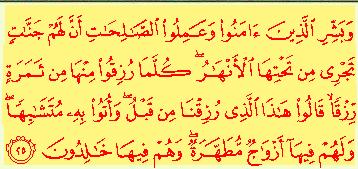 وَبَشِّرِ ٱلَّذِينَ ءَامَنُوا۟ وَعَمِلُوا۟ ٱلصَّـٰلِحَـٰتِ أَنَّ لَهُمْ جَنَّـٰتٍ
تَجْرِى مِن تَحْتِهَا ٱلْأَنْهَـٰرُ ۖ كُلَّمَا رُزِقُوا۟ مِنْهَا مِن ثَمَرَةٍ
رِّزْقًا ۙ قَالُوا۟ هَـٰذَا ٱلَّذِى رُزِقْنَا مِن قَبْلُ ۖ وَأُتُوا۟ بِهِۦ مُتَشَـٰبِهًا ۖ
وَلَهُمْ فِيهَآ أَزْوَٰجٌ مُّطَهَّرَةٌ ۖ وَهُمْ فِيهَا خَـٰلِدُونَ ٢٥